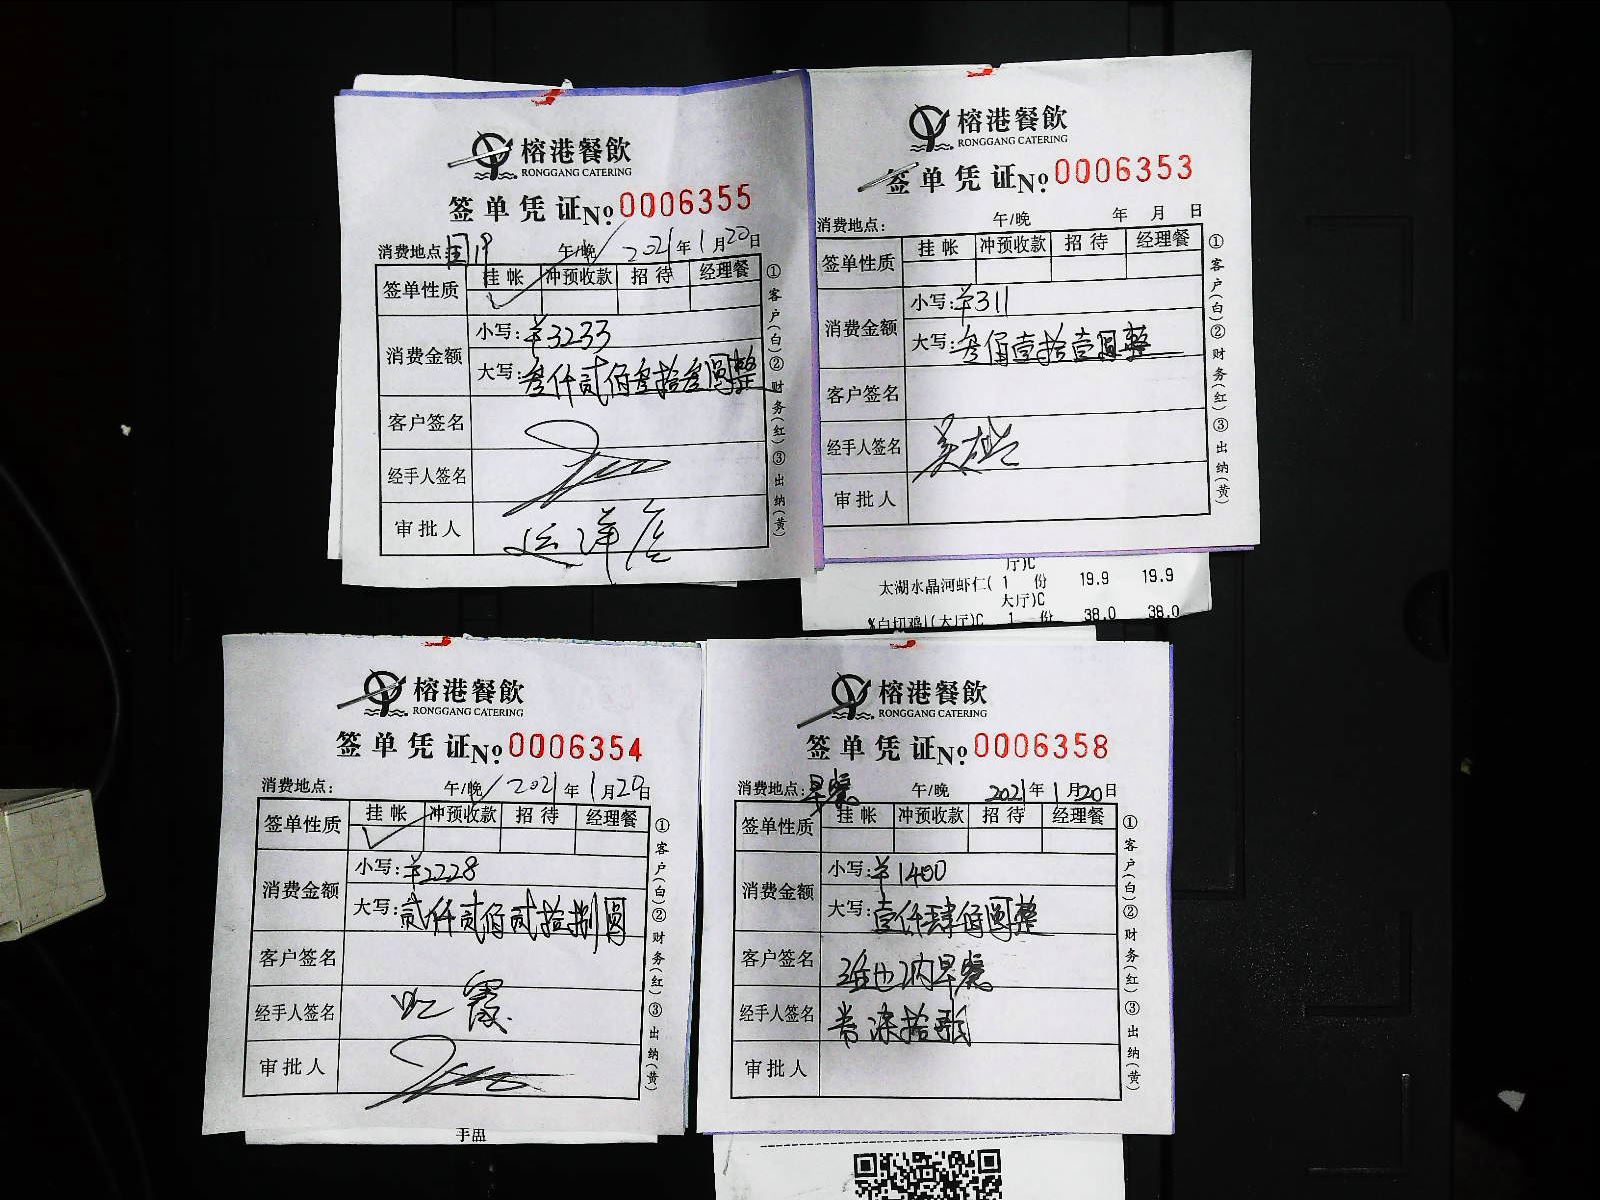 榕港餐飲
RONGGANG CATERING
签单凭证№0006355
消费地点: 午/晚 2021年1月20日
签单性质 挂帐 冲预收款 招待 经理餐
消费金额 小写:¥3233
大写:叁仟贰佰叁拾叁圆整
客户签名
经手人签名
审批人
①客户(白)②财务(红)③出纳(黄)
榕港餐飲
RONGGANG CATERING
签单凭证№0006353
消费地点: 午/晚 年 月 日
签单性质 挂帐 冲预收款 招待 经理餐
消费金额 小写:¥311
大写:叁佰壹拾壹圆整
客户签名
经手人签名
审批人
①客户(白)②财务(红)③出纳(黄)
厅)C
太湖水晶河虾仁( 1 份 19.9 19.9
大厅)C
%白切鸡|(大厅)C 1 份 38.0 38.0
榕港餐飲
RONGGANG CATERING
签单凭证№0006354
消费地点: 午/晚 2021年1月20日
签单性质 挂帐 冲预收款 招待 经理餐
消费金额 小写:¥2228
大写:贰仟贰佰贰拾捌圆
客户签名
经手人签名
审批人
①客户(白)②财务(红)③出纳(黄)
榕港餐飲
RONGGANG CATERING
签单凭证№0006358
消费地点:早餐 午/晚 2021年1月20日
签单性质 挂帐 冲预收款 招待 经理餐
消费金额 小写:¥1400
大写:壹仟肆佰圆整
客户签名 维也纳早餐
经手人签名
审批人
①客户(白)②财务(红)③出纳(黄)